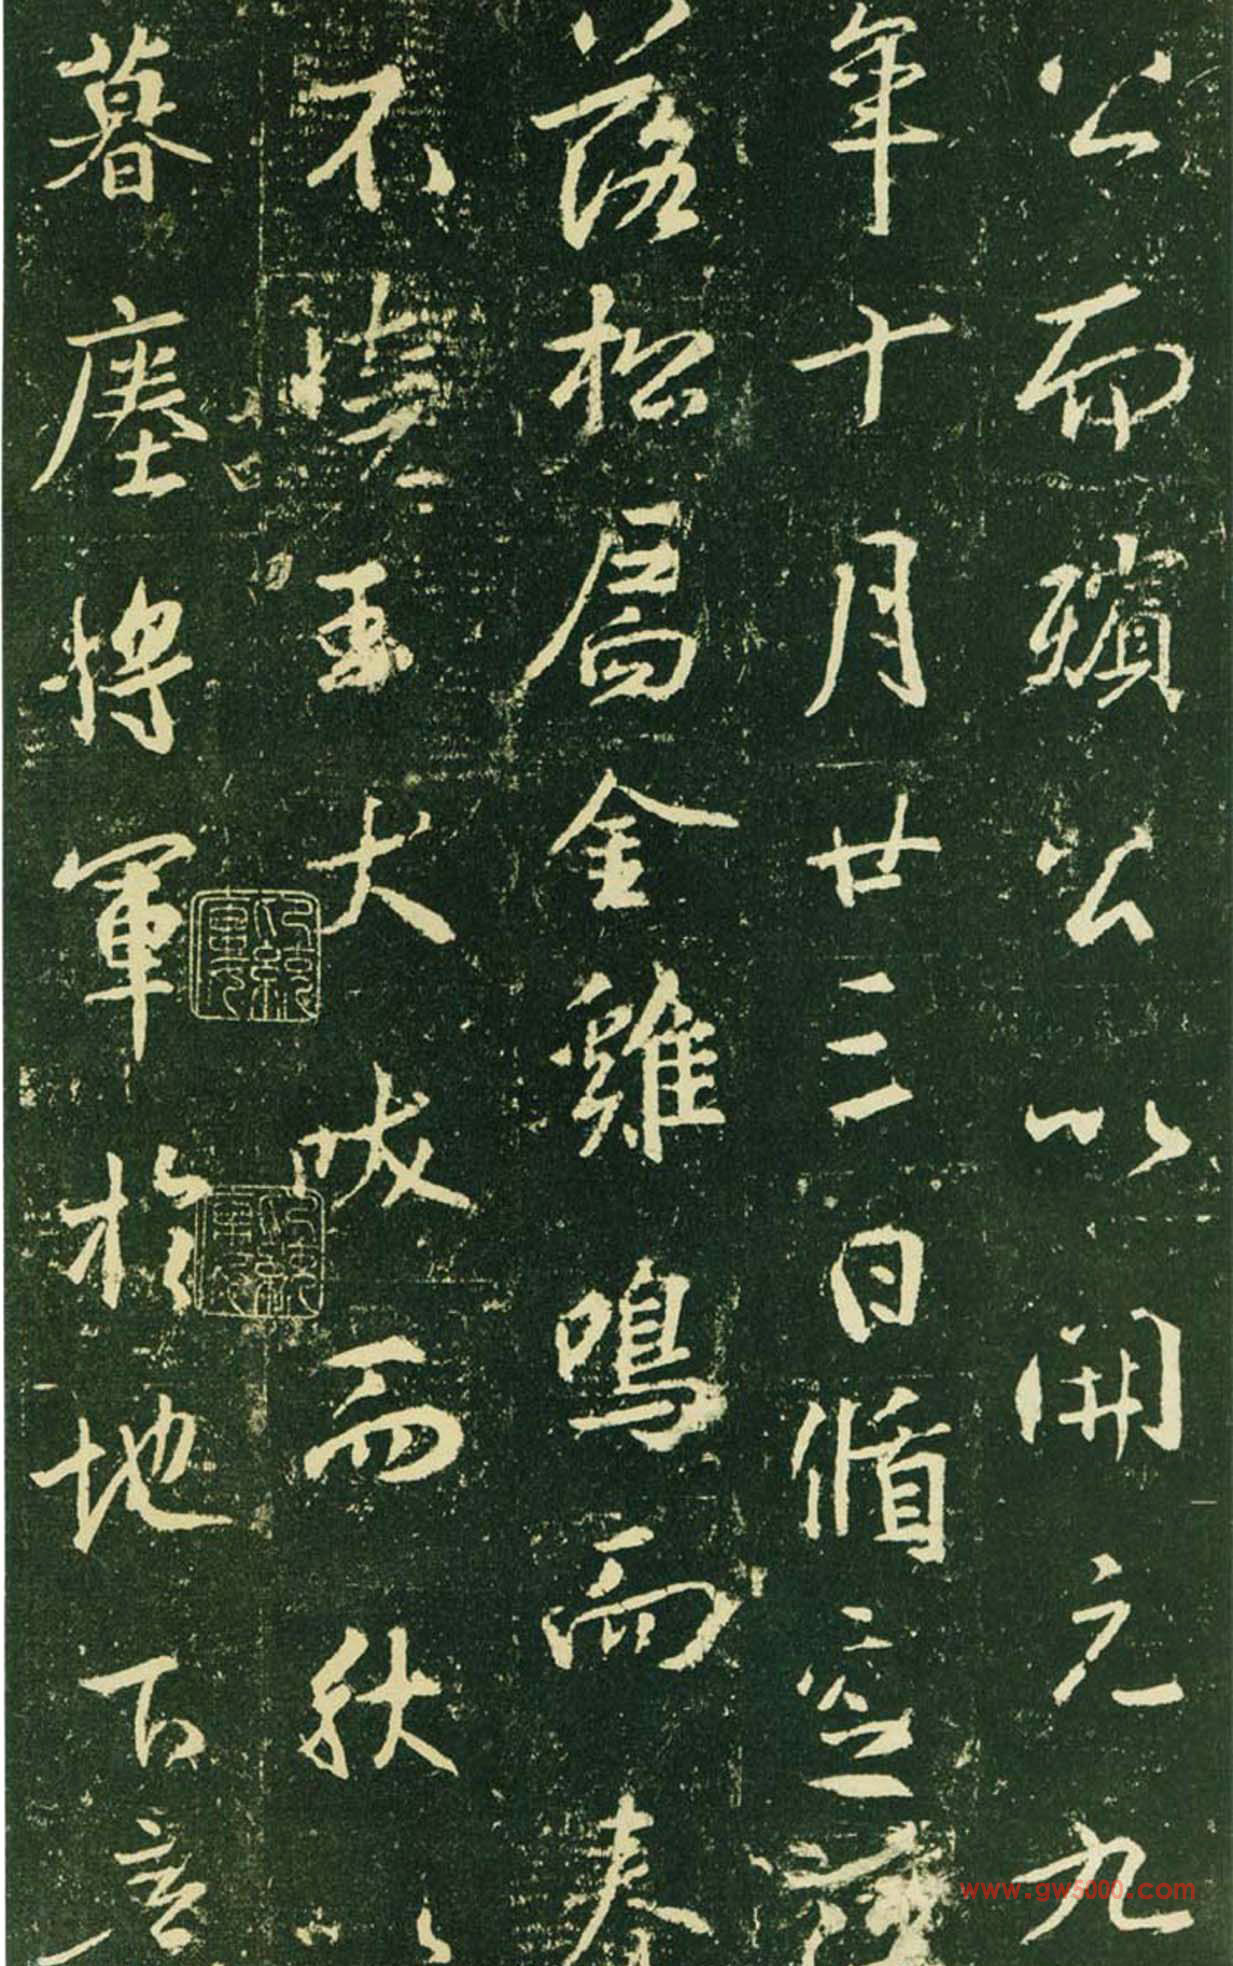 公而殯公以開元九
年十月廿三日循
落松扃金雞鳴而春
不玉犬吠而秋以
暮瘞將軍於地
www.gw5000.com